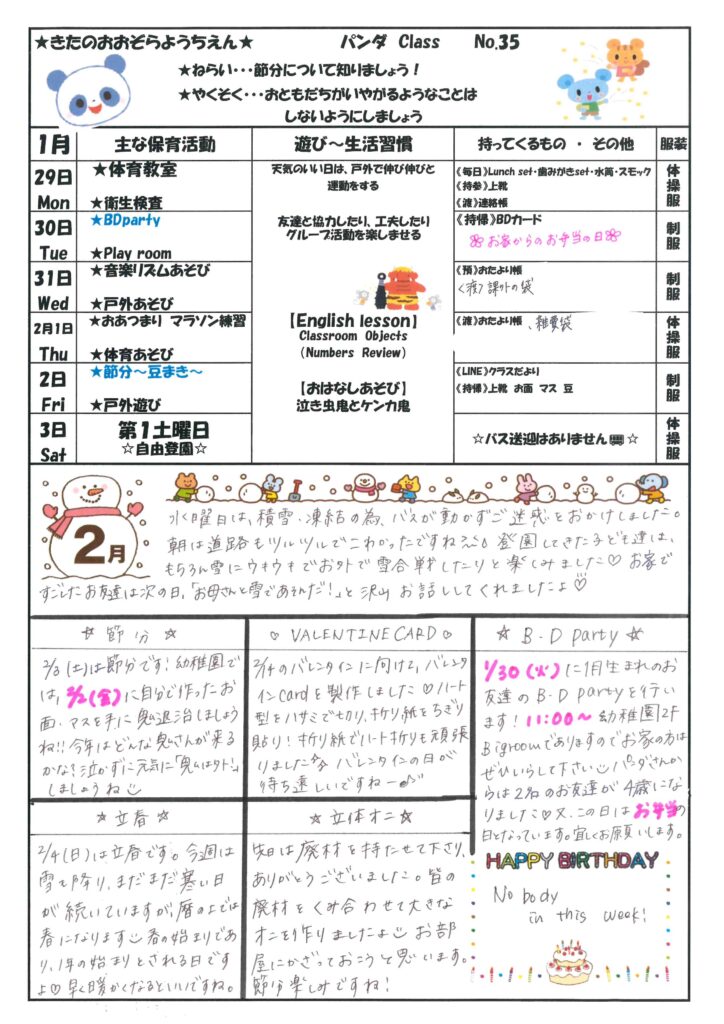 ★きたのおおぞらようちえん★ パンダ Class No.35
★ねらい・・・節分について知りましょう！
★やくそく・・・おともだちがいやがるようなことは
しないようにしましょう
1月 主な保育活動 遊び～生活習慣 持ってくるもの ・ その他 服装
29日 Mon
★体育教室
★衛生検査
天気のいい日は、戸外で伸び伸びと
運動をする
《毎日》Lunch set・歯みがきset・水筒・スモック
《持参》上靴
《渡》連絡帳
体操服
30日 Tue
★BDparty
★Play room
友達と協力したり、工夫したり
グループ活動を楽しませる
《持帰》BDカード
お家からのお弁当の日
制服
31日 Wed
★音楽リズムあそび
★戸外あそび
《預》おたより帳
〈渡〉課外の袋
制服
2月1日 Thu
★おあつまり マラソン練習
★体育あそび
【English lesson】
Classroom Objects
（Numbers Review）
《渡》おたより帳、雑費袋
体操服
2日 Fri
★節分～豆まき～
★戸外遊び
【おはなしあそび】
泣き虫鬼とケンカ鬼
《LINE》クラスだより
《持帰》上靴 お面 マス 豆
制服
3日 Sat
第1土曜日
☆自由登園☆
☆バス送迎はありません☆
体操服
2月
水曜日は、積雪・凍結の為、バスが動かずご迷惑をおかけしました。
朝は道路もツルツルでこわかったですねぇ。登園してきた子ども達は、
もちろん雪にウキウキでお外で雪合戦したりと楽しみました♡お家で
すごしたお友達は次の日、「お母さんと雪であそんだ！」と沢山お話ししてくれましたよ♡
☆ 節分 ☆
2/3(土)は節分です！幼稚園で
は、2/2(金)に自分で作ったお
面・マスを手に鬼退治しましょう
ね!!今年はどんな鬼さんが来る
かな？泣かずに元気に「鬼はソト！」
しましょうね
♡ VALENTINE CARD ♡
2/14のバレンタインに向けて、バレンタ
インcardを製作しました♡ハート
型をハサミで切り、折り紙をちぎり
貼り！折り紙でハート折りも頑張
りました☆バレンタインの日が
待ち遠しいですねー♪
☆ B-D party ☆
1/30(火)に1月生まれのお
友達のB-D partyを行い
ます！11:00～幼稚園2F
Bigroomでありますのでお家の方は
ぜひいらして下さい パンダさんか
らは2名のお友達が4歳にな
りました♡又、この日はお弁当の
日となっています。宜しくお願いします。
☆ 立春 ☆
2/4(日)は立春です。今週は
雪も降り、まだまだ寒い日
が続いていますが、暦の上では
春になります 春の始まりであ
り、1年の始まりとされる日です
よ♡早く暖かくなるといいですね。
☆ 立体オニ ☆
先日は廃材を持たせて下さり、
ありがとうございました。皆の
廃材をくみ合わせて大きな
オニを作りましたよ お部
屋にかざっておこうと思います。
節分楽しみですね！
HAPPY BIRTHDAY
No body
in this week!